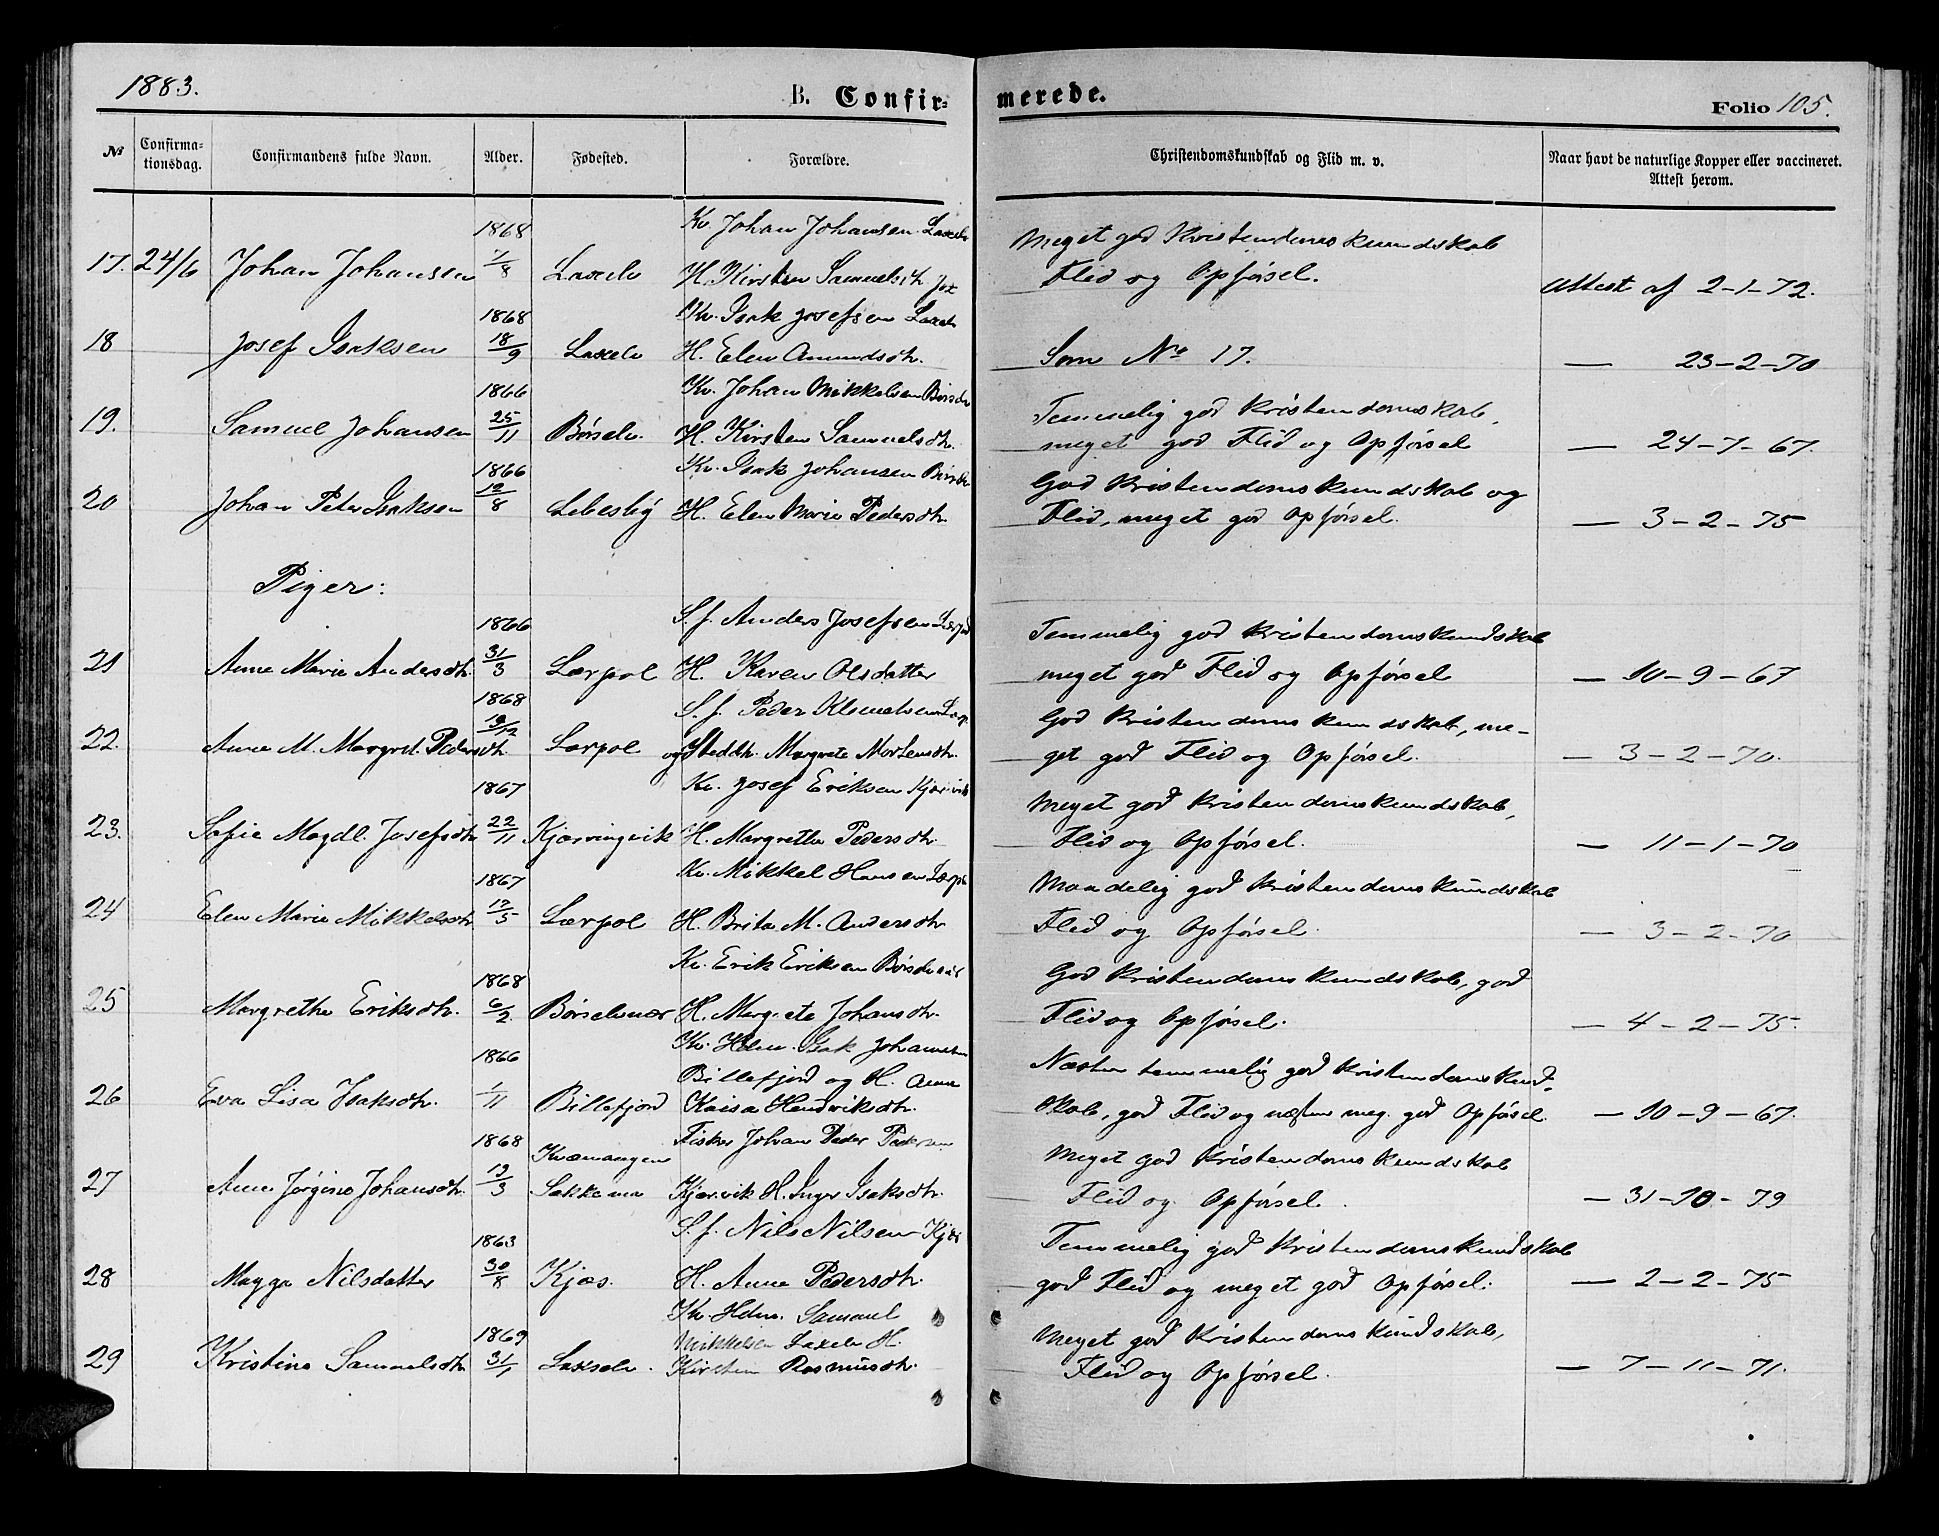 1883.
B. Confirmerede.
Folio 105.
№ Confirmationsdag. Confirmandens fulde Navn. Alder. Fødested. Forældre. Christendomskundskab og Flid m. v. Naar havt de naturlige Kopper eller vaccineret. Attest herom.
1868 Kv. Johan Johansen Laxelv Meget god Kristendomskundskab
17. 24/6 Johan Johansen 7/8 Laxelv H. Kirsten Samuelsdtr. Flid og Opførsel. Attest af 2-1-72.
1868 Kv. Isak Josefsen Laxelv
18 Josef Isaksen 18/9 Laxelv H. Elen Amundsdtr. Som No 17. — 23-2-70
1866 Kv. Johan Mikkelsen Børselv Temmelig god Kristendomskab,
19. Samuel Johansen 25/11 Børselv. H. Kirsten Samuelsdtr. meget god Flid og Opførsel — 24-7-67.
1866 Kv. Isak Johansen Børselv God Kristendomskundskab og
20 Johan Peter Isaksen 12/8 Lebesby H. Elen Marie Pedersdtr. Flid, meget god Opførsel. — 3-2-75
Piger:
1866 S.f. Anders Josefsen Temmelig god Kristendomskundskab
21 Anne Marie Andersdtr. 31/3 Lærpol H. Karen Olsdatter meget god Flid og Opførsel — 10-9-67
1868 S.f. Peder Klemetsen Lærp. God Kristendomskundskab, me-
22. Anne M. Margret. Pedersdtr. 19/12 Lærpol og Steddtr. Margrete Mortensdtr. get god Flid og Opførsel. — 3-2-70.
1867 Kv. Josef Eriksen Kjærvik Meget god Kristendomskundskab,
23. Sofie Magdl. Josefsdtr 22/11 Kjærringvik H. Margrethe Pedersdtr. Flid og Opførsel. — 11-1-70
1867 Kv. Mikkel Hansen Lærpol Maadelig god Kristendomskundskab
24 Elen Marie Mikkelsdtr 12/5 Lærpol H. Brita M. Andersdtr. Flid og Opførsel. — 3-2-70
1868 Kv. Erik Eriksen Børselvnær God Kristendomskundskab, god
25 Margrethe Eriksdtr. 6/2 Børselvnær H. Margrete Johansdtr. Flid og Opførsel. — 4-2-75.
1866 Kv. Hdm. Isak Johannesen Næsten temmelig god Kristendomskund-
Billefjord og H. Anne
26 Eva Lisa Isaksdtr. 1/11 Billefjord Kaisa Hendriksdtr. skab, god Flid og næsten meg. god Opførsel. — 10-9-67.
1868 Kvænangen Fisker Johan Peder Pedersen Meget god Kristendomskundskab
27 Anne Jørgine Johansdtr. 12/3 Sakkemo Kjærvik H. Inger Isaksdtr. Flid og Opførsel. — 31-10-79
1863 S.f. Nils Nilsen Kjæs Temmelig god Kristendomskundskab
28 Magga Nilsdatter 30/8 Kjæs. H. Anne Pedersdtr. god Flid og meget god Opførsel. — 2-2-75
Kv. Hdm. Samuel
1869 Mikkelsen Laxelv H. Meget god Kristendomskundskab,
29 Kristine Samuelsdtr 31/1 Laxelv. Kirsten Rasmusdtr. Flid og Opførsel. — 7-11-71.